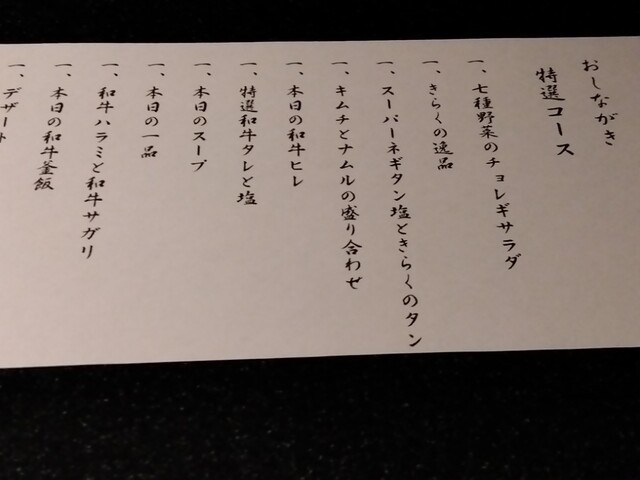 おしながき
特選コース
一、七種野菜のチョレギサラダ
一、きらくの逸品
一、スーパーネギタン塩ときらくのタン
一、キムチとナムルの盛り合わせ
一、本日の和牛ヒレ
一、特選和牛タレと塩
一、本日のスープ
一、本日の一品
一、和牛ハラミと和牛サガリ
一、本日の和牛釜飯
一、デザート